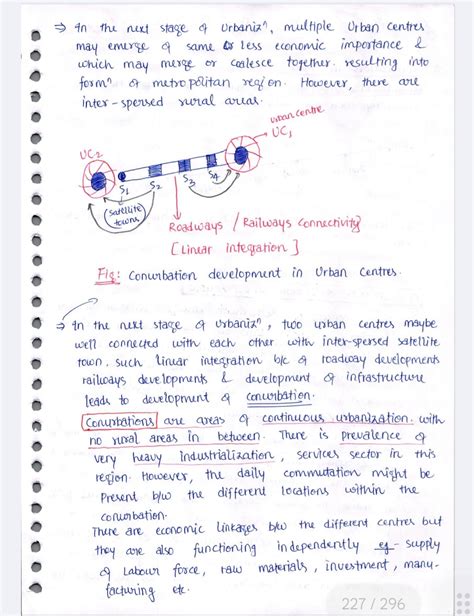 ⇒ In the next stage of Urbanizⁿ, multiple Urban Centres
may emerge of same or less economic importance &
which may merge or coalesce together. resulting into
formⁿ of metropolitan region. However, there are
inter-spersed rural areas.
urban centre
UC₁
UC₂
S₁ S₂ S₃ S₄
(satellite towns)
Roadways / Railways Connectivity
[Linear integration]
Fig: Conurbation development in Urban Centres.
⇒ In the next stage of Urbanizⁿ, two urban centres maybe
well connected with each other with inter-spersed satellite
town, such linear integration b/c of roadway developments
railways developments & development of infrastructure
leads to development of conurbation.
Conurbations are areas of continuous urbanization with
no rural areas in between. There is prevalence of
very heavy industrialization, services sector in this
region. However, the daily commutation might be
Present b/w the different locations within the
conurbation.
There are economic linkages b/w the different centres but
they are also functioning independently eg - supply
of Labour force, raw materials, investment, manu-
facturing etc.
227 / 296